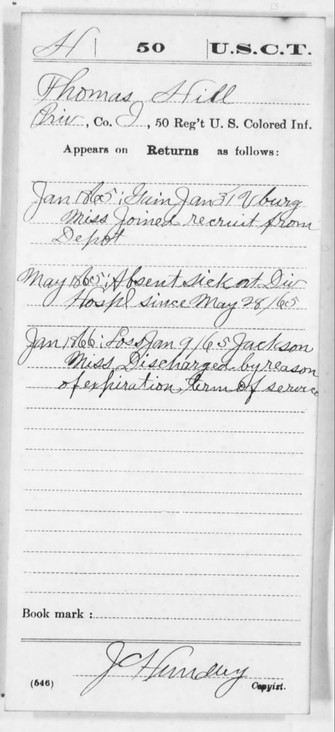 H | 50 | U.S.C.T.
Thomas Hill
Priv, Co. I, 50 Reg't U. S. Colored Inf.
Appears on Returns as follows:
Jan 1865: Gain Jan 31 Vburg
Miss Joined recruit from
Depot
May 1865: Absent sick at Div
Hospl since May 28/65
Jan 1866: Loss Jan 9/65 Jackson
Miss Discharged by reason
of expiration, term of service
Book mark :
(546) Copyist.